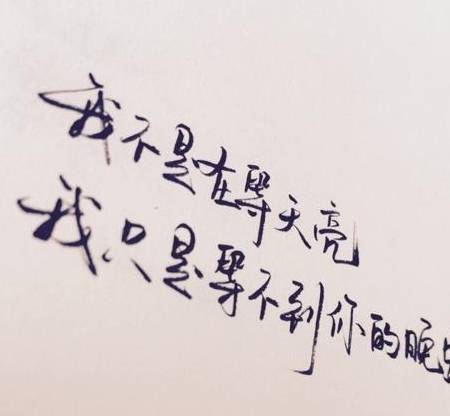 我不是在等天亮
我只是等不到你的晚